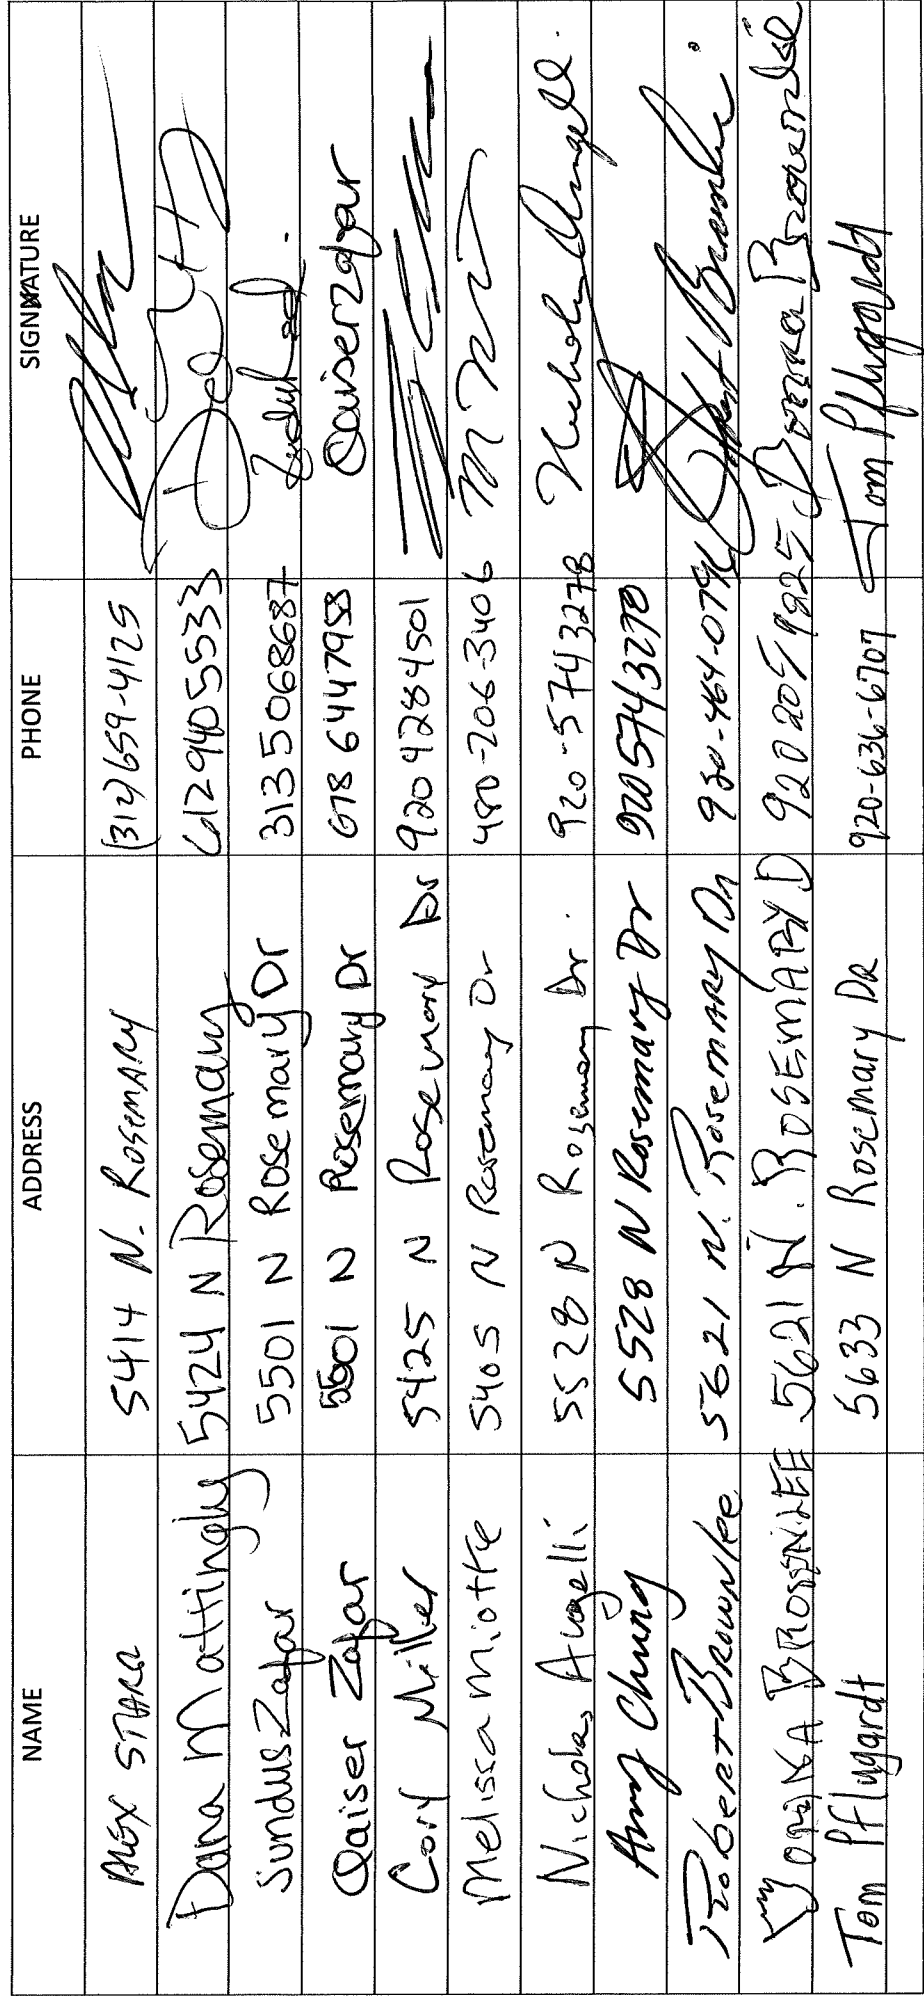 NAME ADDRESS PHONE SIGNATURE
ALEX STARR 5414 N. ROSEMARY (312) 659-4125
Dana Mattingly 5424 N Rosemary 6129405533
Sundus Zafar 5501 N Rosemary Dr 3135068687
Qaiser Zafar 5501 N Rosemary Dr 678 6447958 Qaiserzafar
Cory Miller 5425 N Rosemary Dr 9204284501
Melissa Miotke 5405 N Rosemary Dr 480-206-3406
Nicholas Augelli 5528 N Rosemary Dr. 920-5743278
Amy Chung 5528 N Rosemary Dr 9205743270
Robert Brownlee 5621 N. Rosemary Dr 920-464-0796 Robert Brownlee
DONNA BROWNLEE 5621 N. ROSEMARY D 920 205 9825 Donna Brownlee
Tom Pflugardt 5633 N Rosemary DR 920-636-6707 Tom Pflugardt